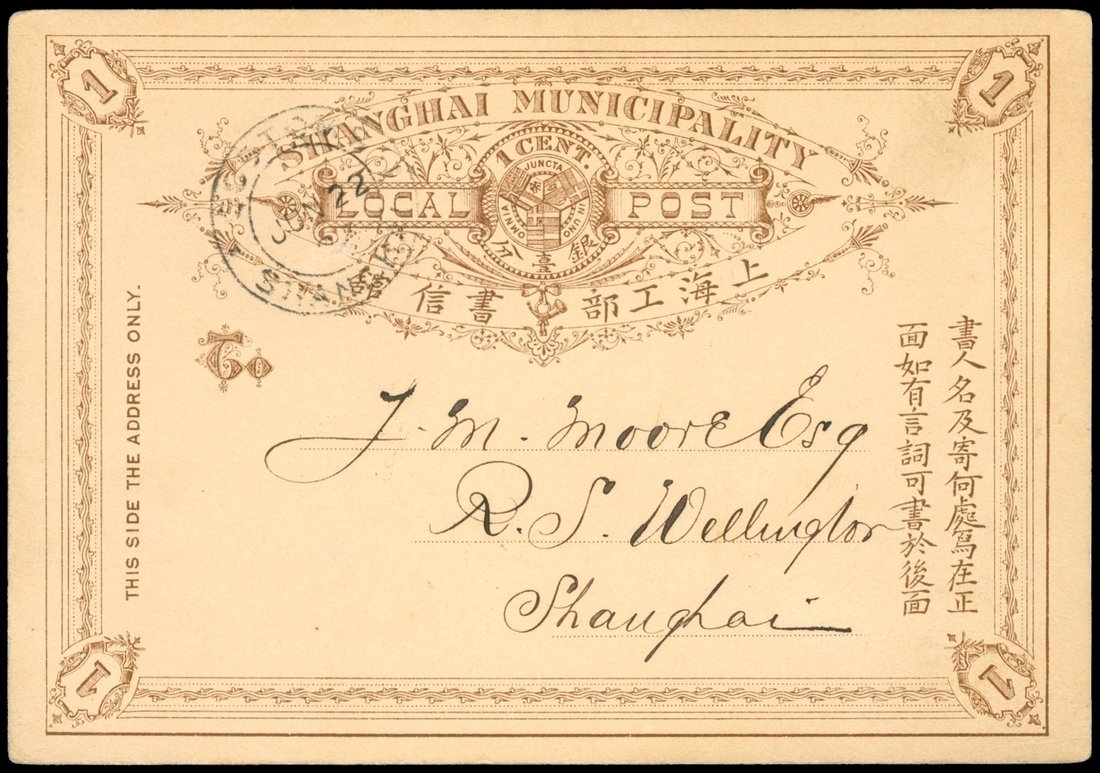 1
1
SHANGHAI MUNICIPALITY
1 CENT.
JUNCTA IN UNO OMNIA
LOCAL POST
銀壹分
上海工部書信館
LOCAL POST
JUN 22
SHANGHAI
To
J. M. Moore Esq
R. S. Wellington
Shanghai
THIS SIDE THE ADDRESS ONLY.
書人名及寄何處寫在正
面如有言詞可書於後面
1
1